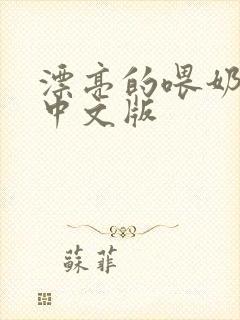 漂亮的喂奶
中文版
蘇菲